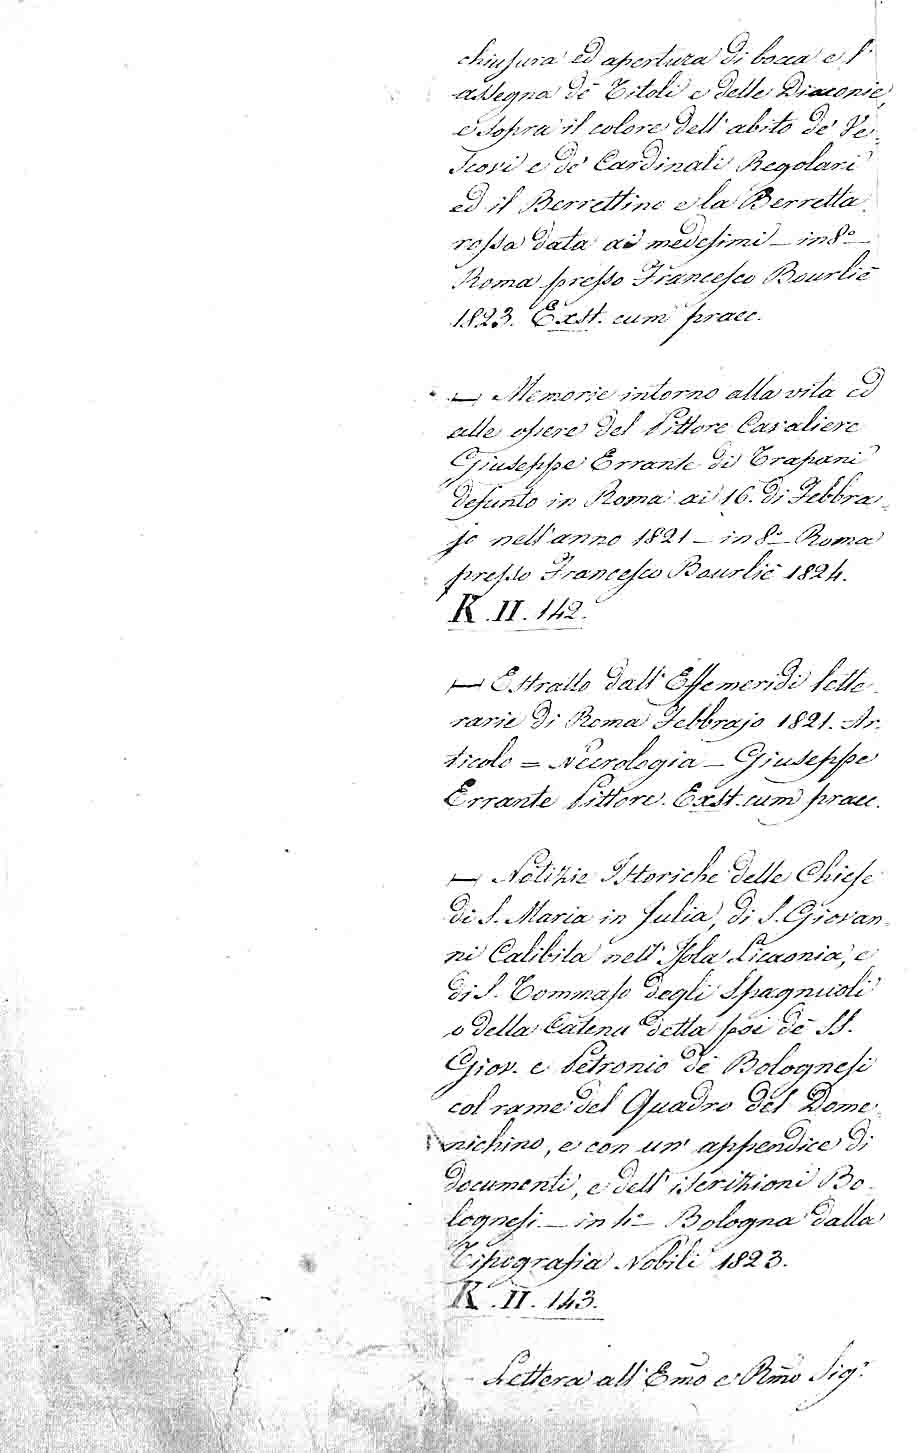 chiusura ed apertura di bocca e l'
assegna de' Titoli e delle Diaconie,
e sopra il colore dell'abito de' Ve-
scovi e de' Cardinali Regolari
ed il Berrettino e la Berretta
rossa data ai medesimi - in 8.o -
Roma presso Francesco Bourliè
1823. Exst. cum praec.

— Memorie intorno alla vita ed
alle opere del Pittore Cavaliere
Giuseppe Errante di Trapani
defunto in Roma ai 16. di Febbra-
jo nell'anno 1821 - in 8.o - Roma
presso Francesco Bourliè 1824.
K. II. 142.

— Estratto dall'Effemeridi lette-
rarie di Roma Febbrajo 1821. Ar-
ticolo = Necrologia - Giuseppe
Errante Pittore. Exst. cum praec.

— Notizie Istoriche delle Chiese
di S. Maria in Julia, di S. Giovan-
ni Calibita nell'Isola Licaonia, e
di S. Tommaso degli Spagnuoli
o della Catena detta poi de' SS.
Giov. e Petronio de' Bolognesi
col rame del Quadro del Dome-
nichino, e con un' appendice di
documenti, e dell'iscrizioni Bo-
lognesi - in 4.o - Bologna dalla
Tipografia Nobili 1823.
K. II. 143.

- Lettera all'Emo e Rmo Sig.r